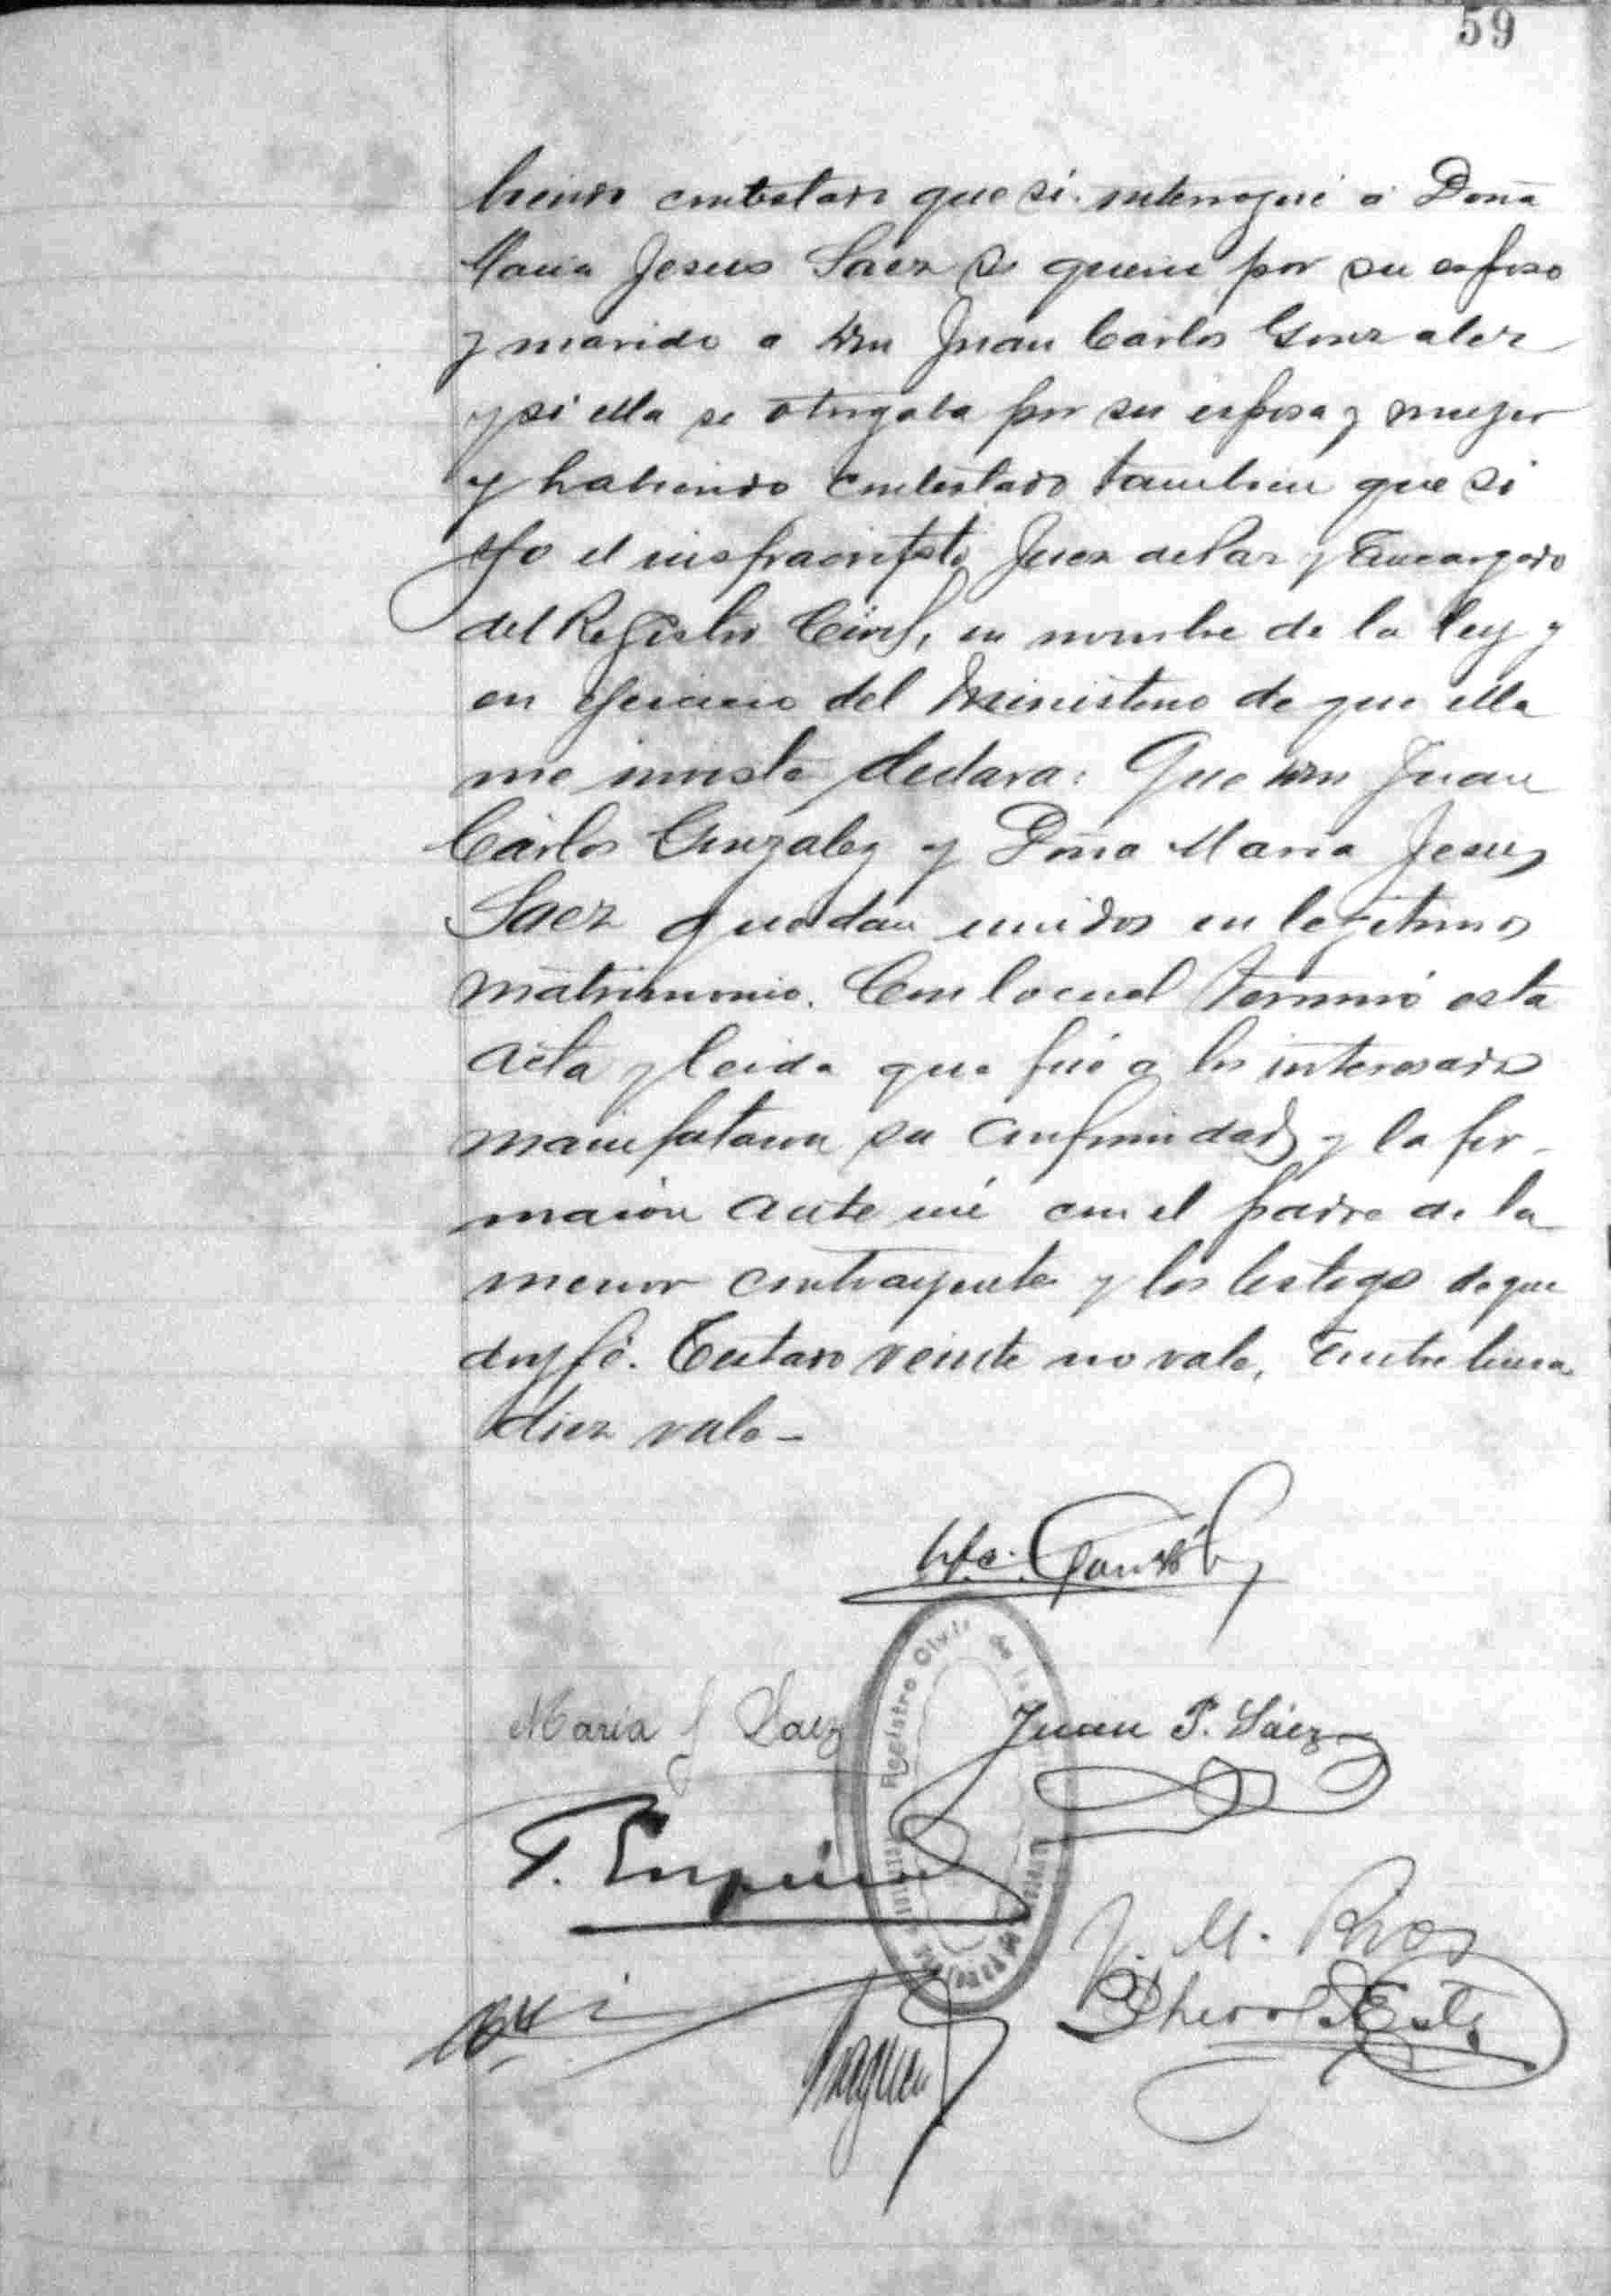 59
biendo contestado que si. interrogué á Doña
Maria Jesus Saez si queria por su esposo
y marido a don Juan Carlos Gonzalez
y si ella se otorgaba por su esposa y mujer
y habiendo contestado tambien que si
Yo el infraescripto Juez de Paz y Encargado
del Registro Civil, en nombre de la ley y
en ejercicio del Ministerio de que ella
me inviste declara: Que don Juan
Cárlos Gonzalez y Doña Maria Jesus
Saez quedan unidos en legitimo
matrimonio. Con lo cual terminó esta
acta y leida que fué a los interesados
manifestaron su conformidad y la fir-
maron ante mi con el padre de la
menor contrayente y los testigos de que
doy fé. Testado veinte no vale, Entre linea
diez vale-
Maria J Saez
Juan P. Sáez
Registro Civil de la
J. M. Rios